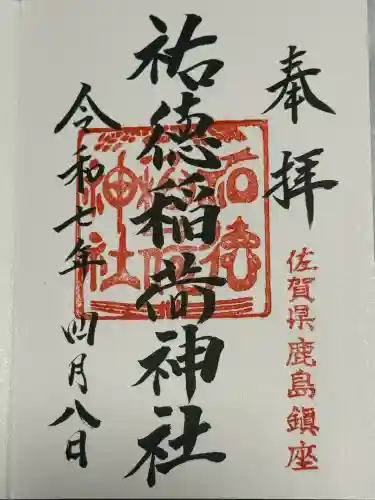 奉拝
佐賀県鹿島鎮座
祐徳稲荷神社
祐徳稲荷神社
令和七年 四月八日